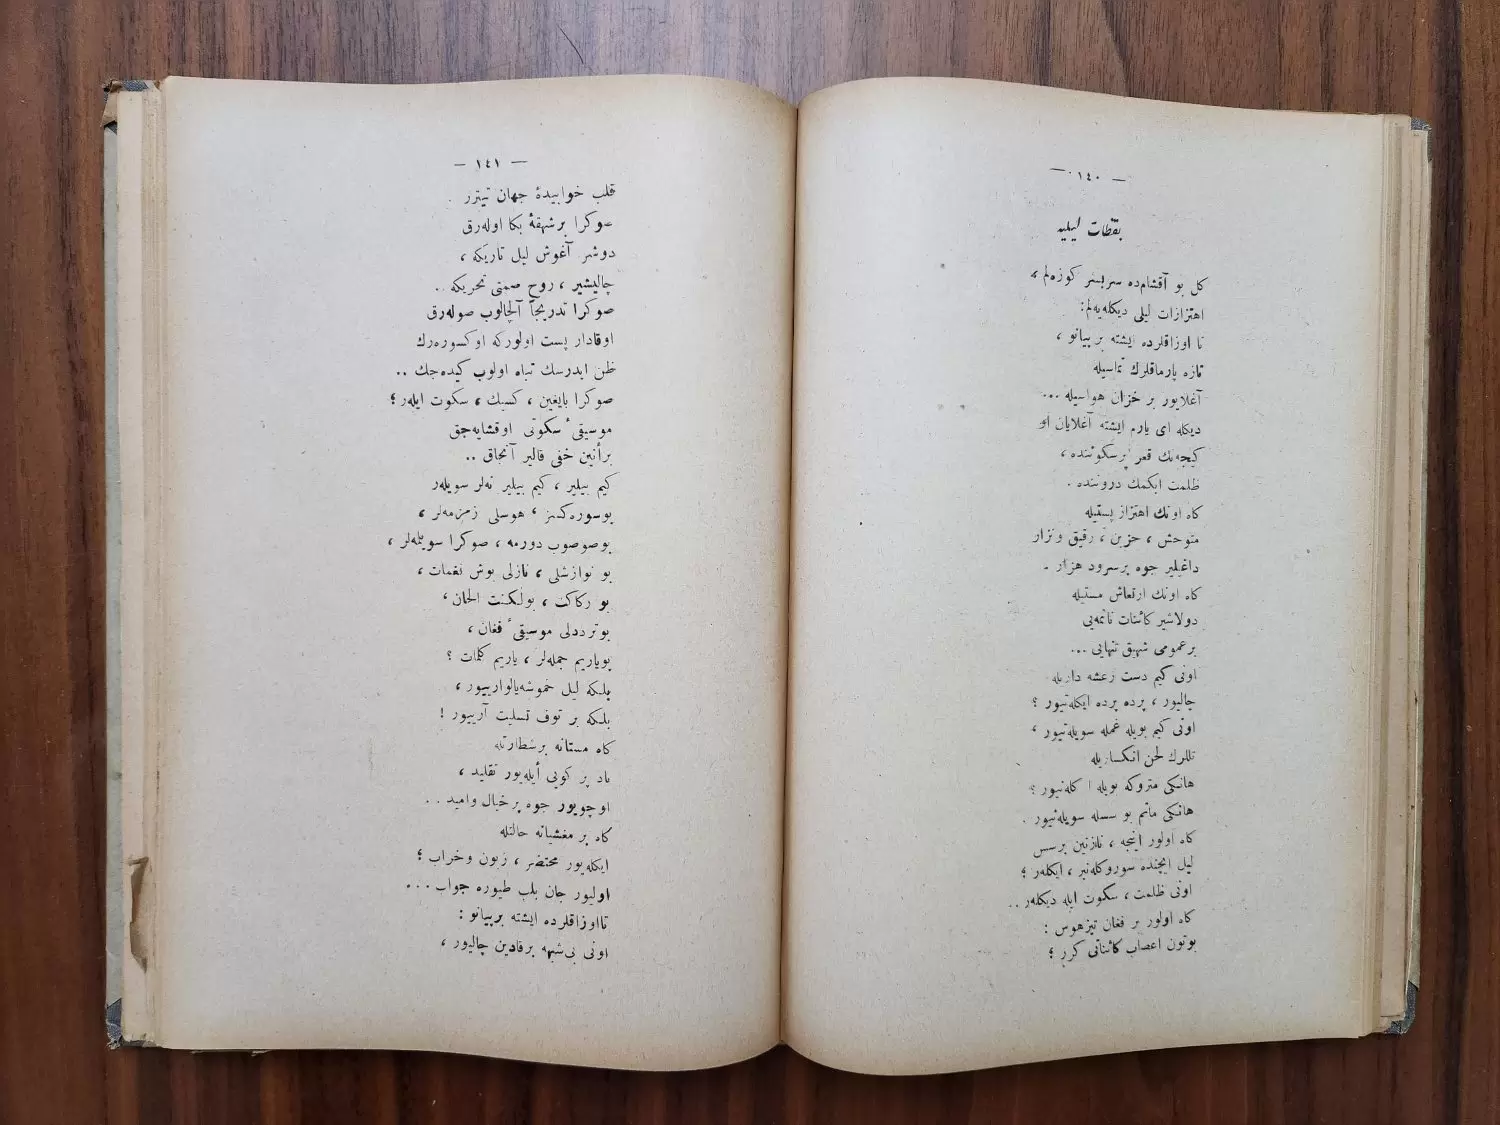 — ١٤٠ —
بقظات ليليه
كل بو آقشام‌ده سربسر كوزه‌لم ،
اهتزازات ليلى ديكله‌يه‌لم :
تا اوزاقلرده ايشته بر پيانو ،
تازه پارماقلرك تماسيله
آغلايور بر خزان هواسيله ...
ديكله اى يارم ايشته آغلايان او
كيجه‌نك قعر پرسكوتنده ،
ظلمت ابكمك دروننده .
كاه اونك اهتزاز پستيله
متوحش ، حزين ، رقيق و نزار
داغيلير جوه بر سرود هزار .
كاه اونك ارتعاش مستيله
دولاشير كائنات نائمه‌يى
بر عمومى شهيق تنهايى ...
اونى كيم دست رعشه داريله
چاليور ، پرده پرده ايكله‌تيور ؟
اونى كيم بويله غمله سويله‌تيور ،
تللرك لحن انكساريله
هانكى متروكه بويله ا كله‌نيور ؟
هانكى ماتم بو سسله سويله‌نيور .
كاه اولور اينجه ، نازنين بر سس
ليل ايچنده سوروكله‌نير ، ايكلر ؛
اونى ظلمت ، سكوت ايله ديكلر ..
كاه اولور بر فغان تيزهوس :
بوتون اعصاب كائناتى كرر ؛
— ١٤١ —
قلب خوابيدۀ جهان تيترر .
صوكرا بر شهقۀ بكا اوله‌رق
دوشر آغوش ليل تاريكه ،
چاليشير ، روح صمتى تحريكه ..
صوكرا تدريجاً آلچالوب صوله‌رق
اوقادار پست اولوركه اوكسوره‌رك
ظن ايدرسك تباه اولوب كيده‌جك ..
صوكرا بايغين ، كسيك ، سكوت ايلر ؛
موسيقئ سكوتى اوقشايه‌جق
بر أنين خفى قالير آنجاق ..
كيم بيلير ، كيم بيلير نه‌لر سويلر
بو سوره‌كسز ، هوسلى زمزمه‌لر ،
بو صوصوب دورمه ، صوكرا سويلمه‌لر ،
بو نوازشلى ، نازلى بوش نغمات ،
بو ركاكت ، بو لكنت الحان ،
بو ترددلى موسيقئ فغان ،
بو ياريم جمله‌لر ، ياريم كلمات ؟
بلكه ليل خموشه يالوارييور ،
بلكه بر توف تسليت آرييور !
كاه مستانه بر شطارتله
باد پر كويى أيله‌يور تقليد ،
اوچويور جوه پر خيال و اميد ..
كاه بر مغشيانه حالتله
ايكله‌يور محتضر ، زبون و خراب ؛
اوليور جان بلب طيوره جواب ...
تا اوزاقلرده ايشته بر پيانو :
اونى بى شبهه بر قادين چاليور ،